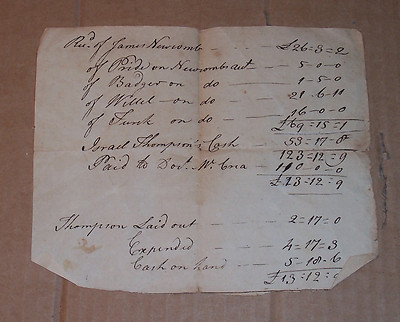 Rec.d of James Newcomb — — £26=3=2
of Pride on Newcombs act — 5-0-0
of Badger on do — — 1-5-0
of Willel — on do — — 21-6-11
of Turk on do — — 16-0-0
£69=15=1
Israel Thompson's Cash — 53=17-8
123=12=9
Paid to Doct. McCrea — 110-0-0
£13=12=9
Thompson Laid out — — 2=17=0
Expended — — 4=17=3
Cash on hand — — 5-18-6
£13=12=